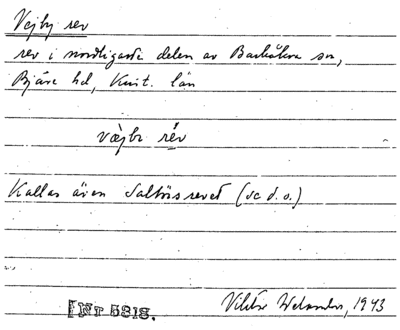 Vejby rev
rev i nordligaste delen av Barkåkra sn,
Bjäre hd, Krist. län
væ̀jbı rév
Kallas även Saltörsrevet (se d. o.)
[Nr 5818.
Viktor Welander, 1943